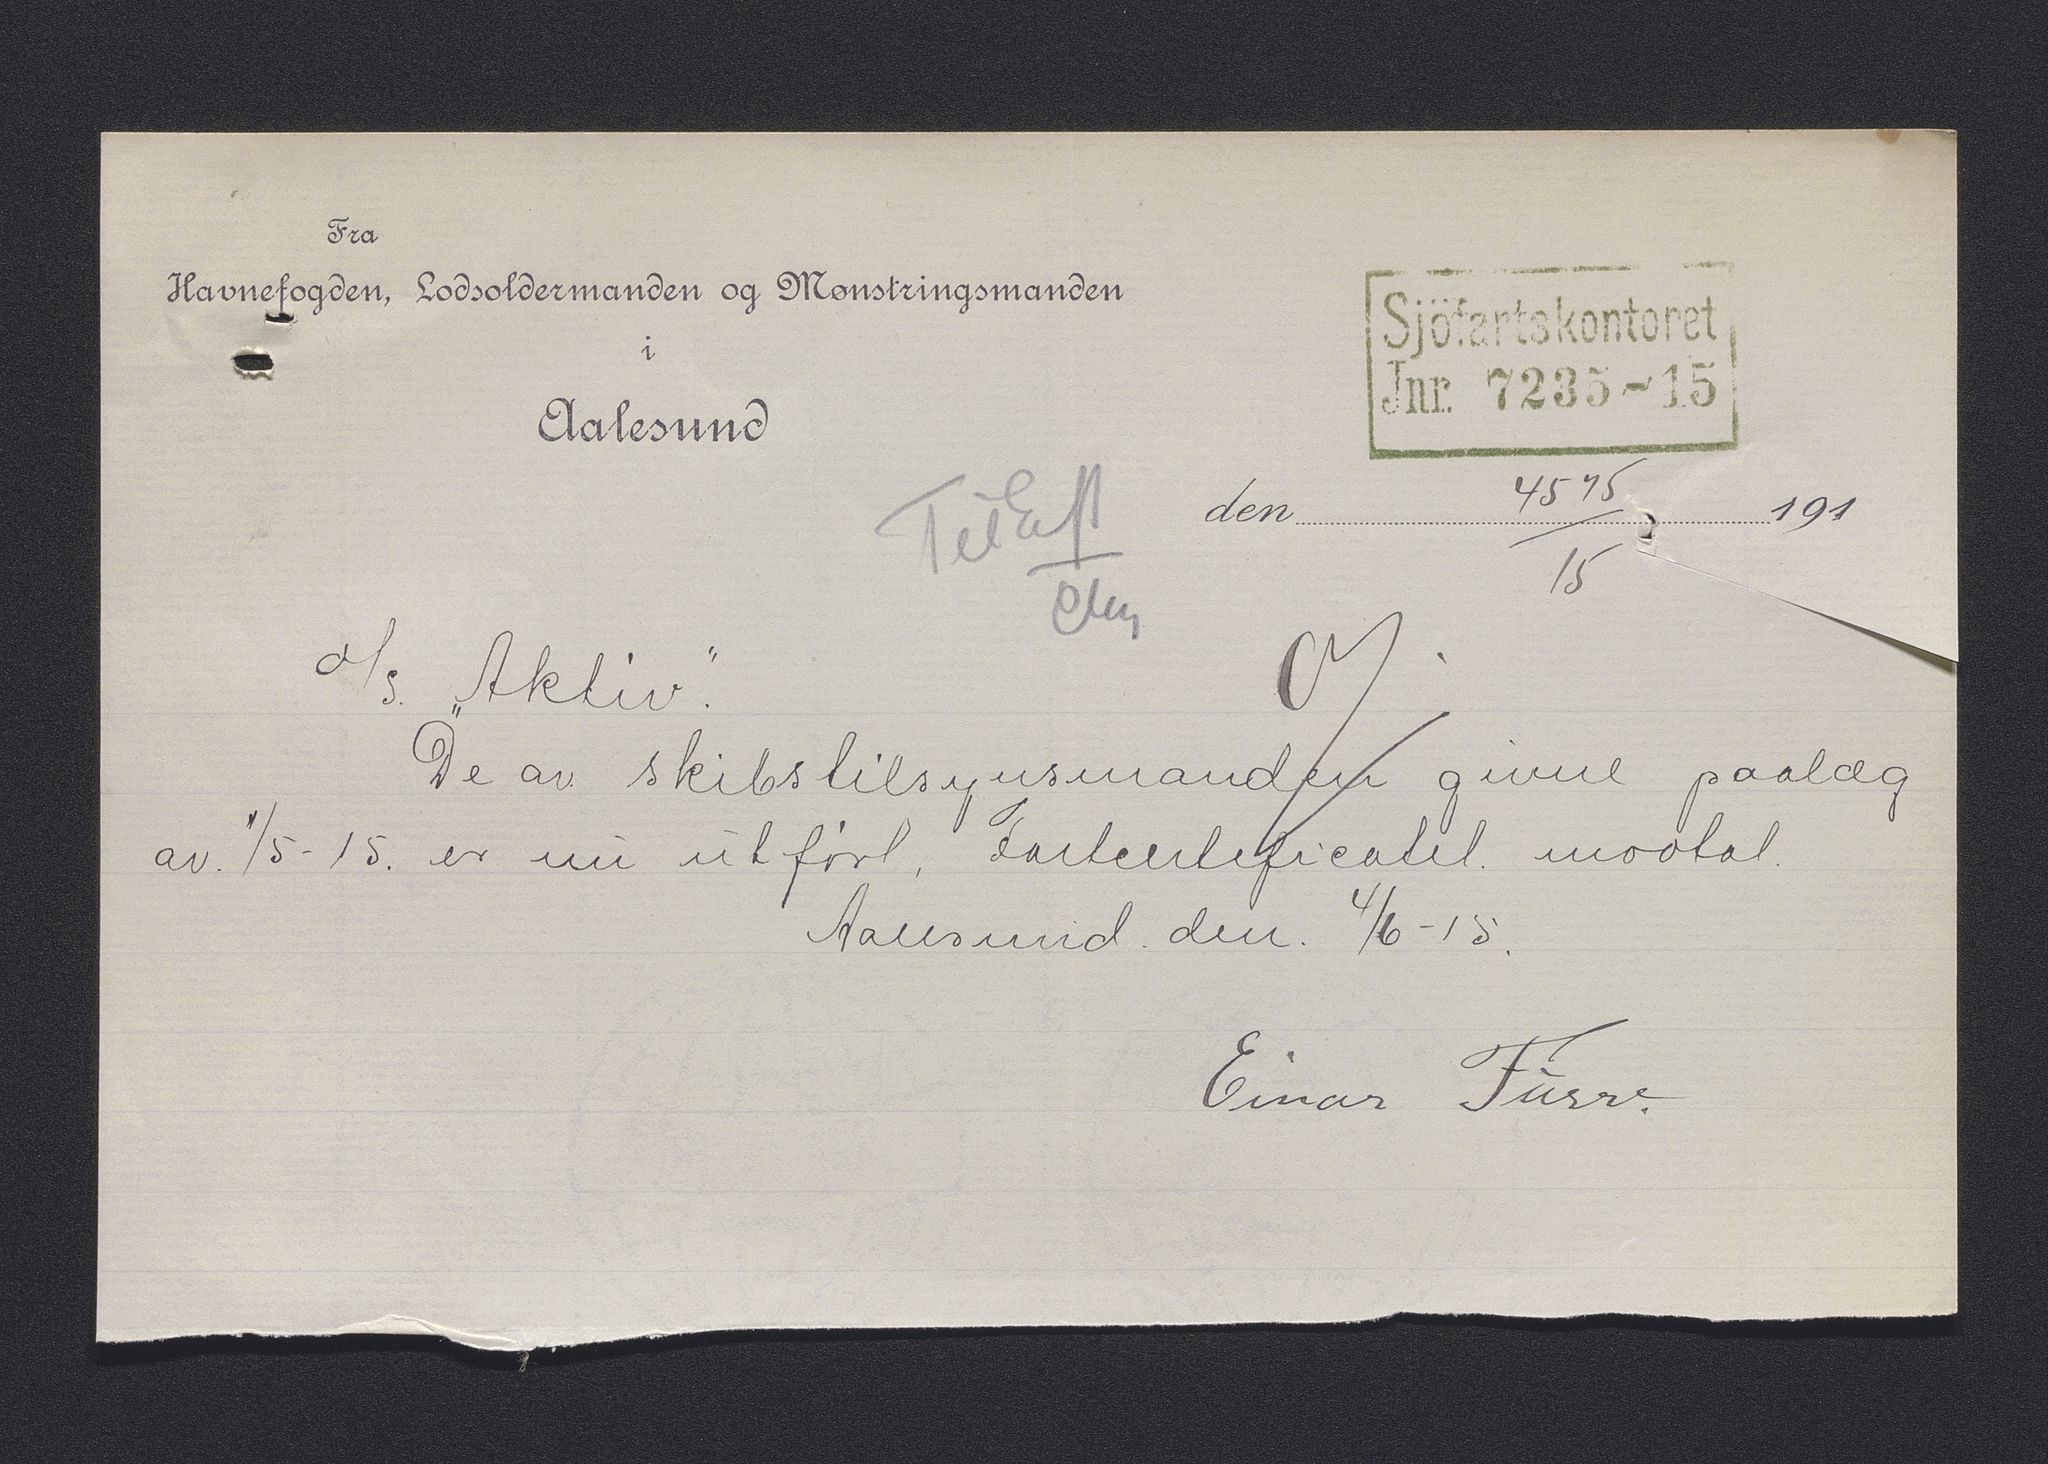 Fra
Havnefogden, Lodsoldermanden og Mønstringsmanden
i
Aalesund
Sjöfartskontoret
Jnr. 7235-15
den 191
15
d/s. „Aktiv".
De av skibstilsynsmanden givne paalæg
av. 1/5-15. er nu utført, Fartcertificatet. mootat.
Aalesund. den. 4/6-15.
Einar Furre.